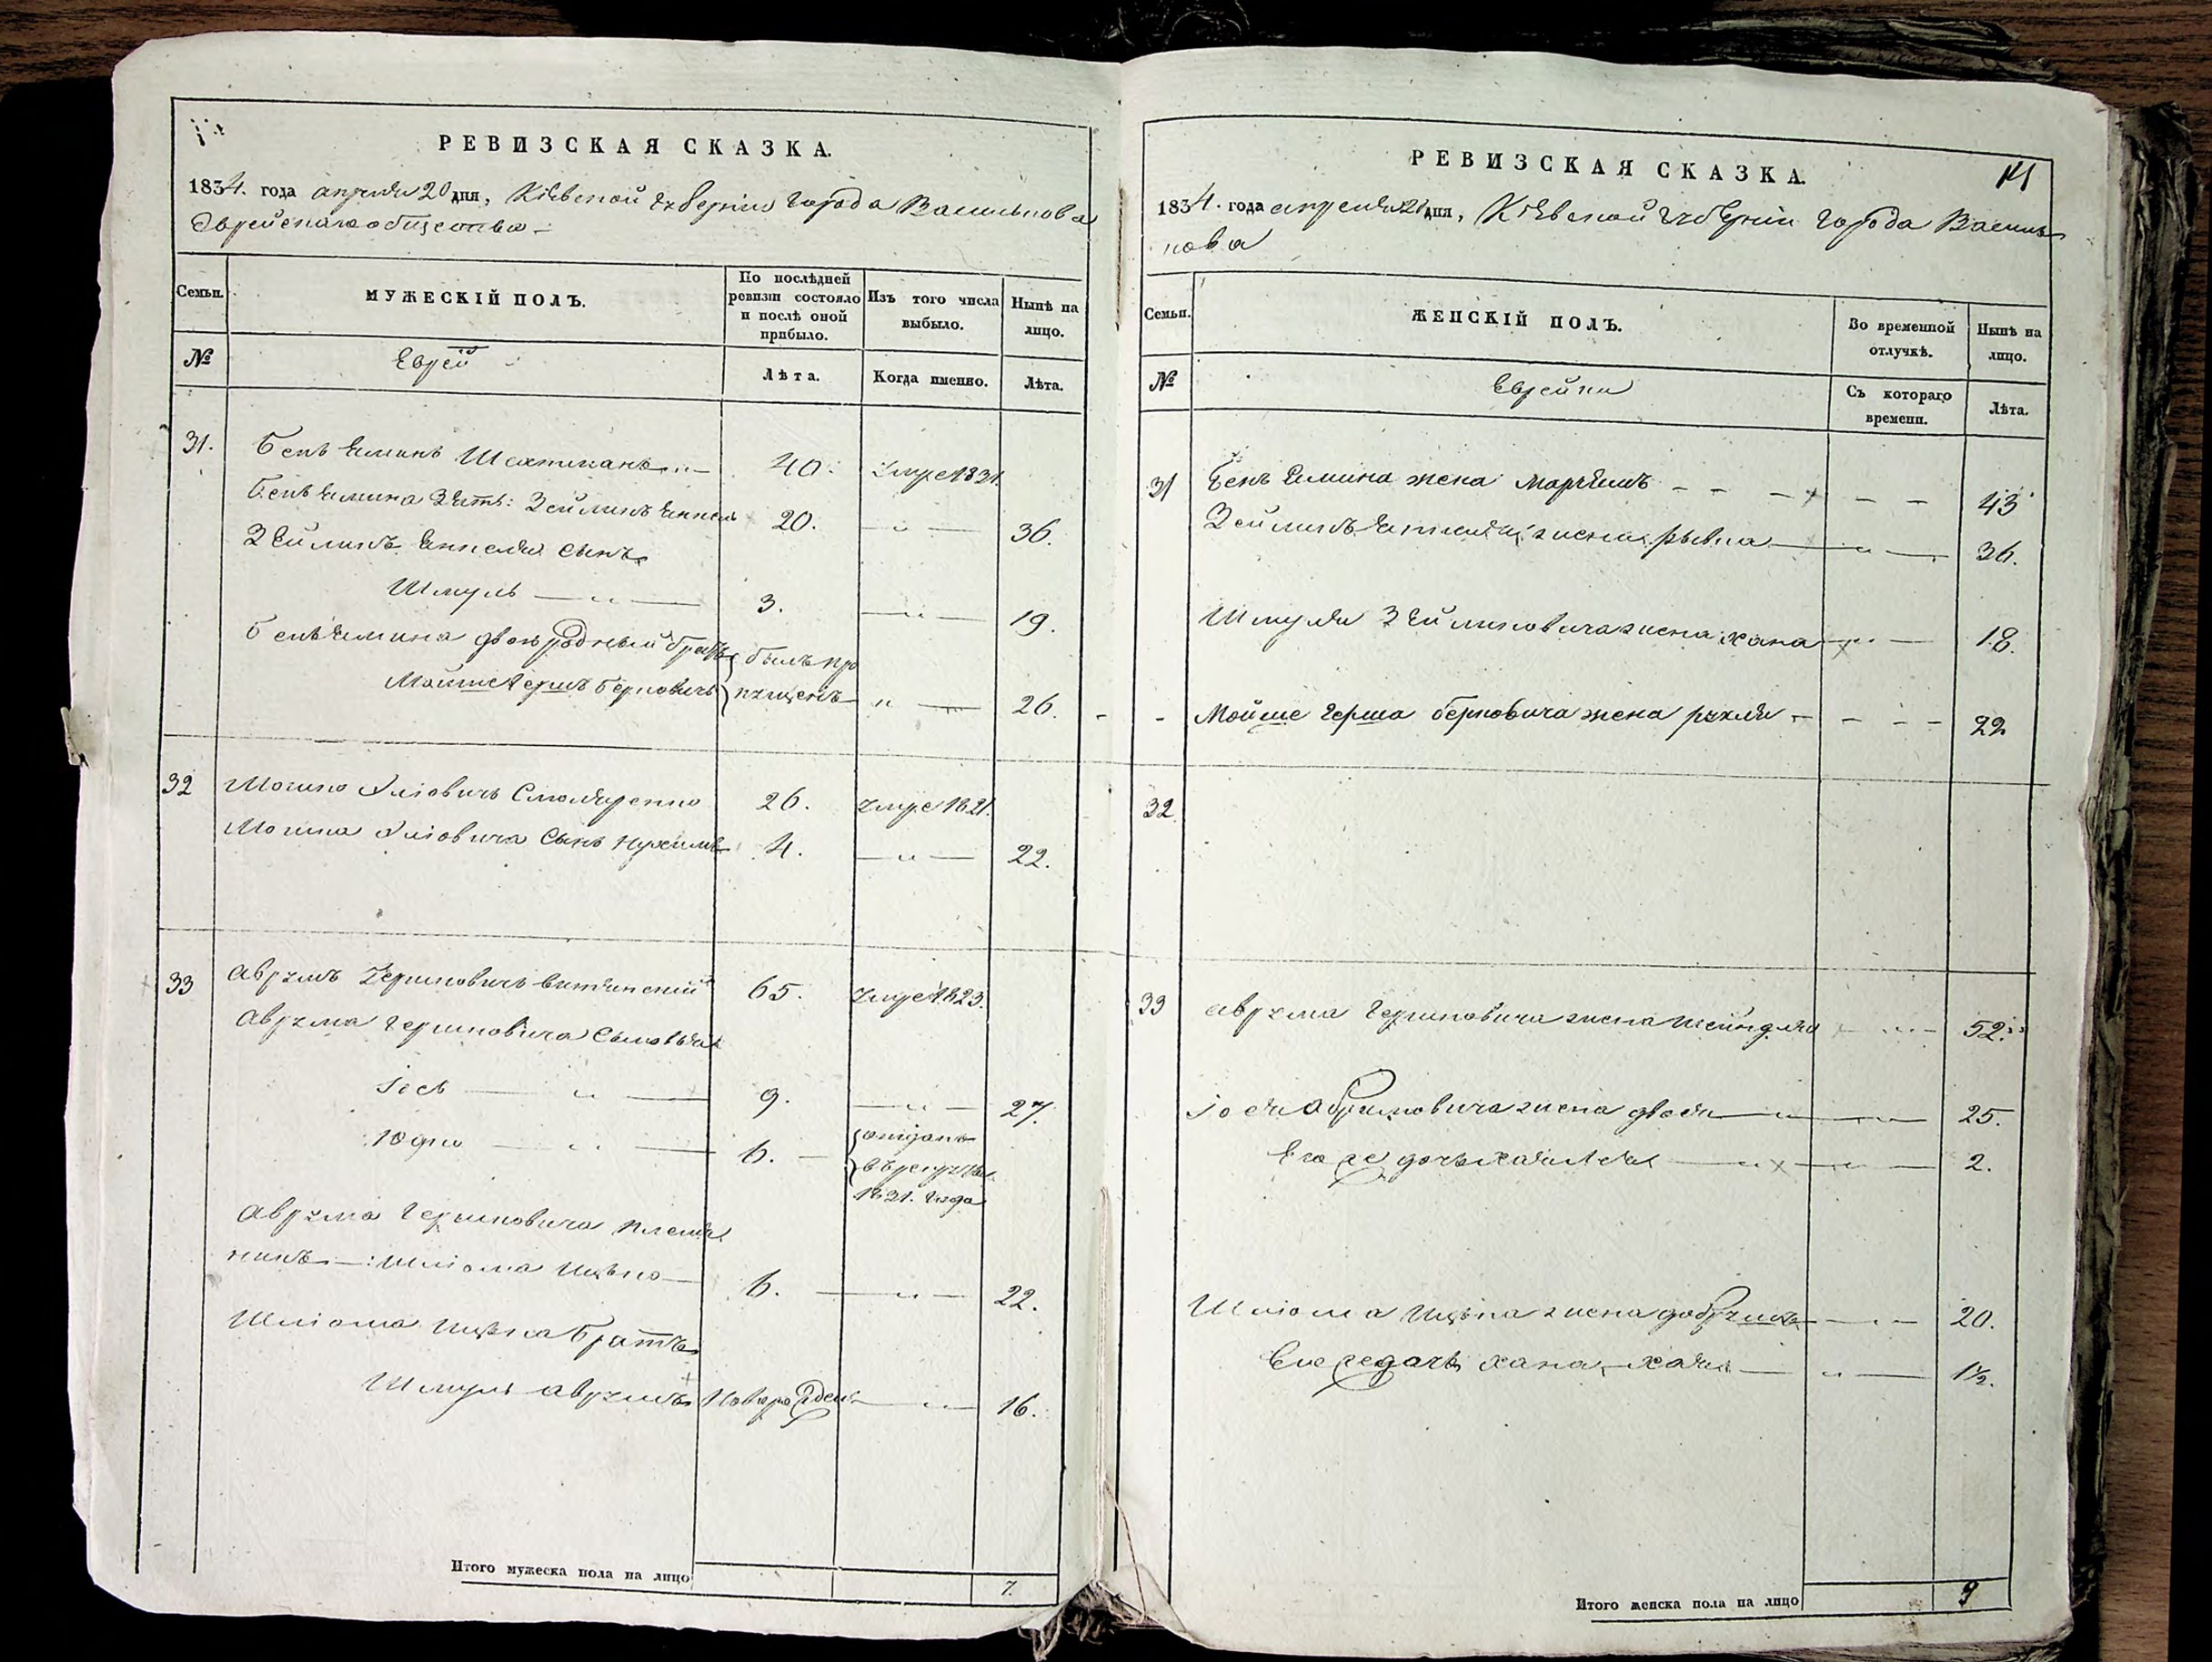 РЕВИЗСКАЯ СКАЗКА.
1834. года апреля 20 дня, Кіевской губерніи города Василькова
Еврейскаго общества
Семьи.
МУЖЕСКІЙ ПОЛЪ.
По послѣдней ревизіи состояло и послѣ оной прибыло.
Изъ того числа выбыло.
Нынѣ на лицо.
№
Еврей
Лѣта.
Когда именно.
Лѣта.
31. Бенъ Еминъ Шехтманъ 40. умре 1831
Бенъ Емина Зять: Зейликъ Янкель 20. 36.
Зейликъ Янкеля сынъ
Шмуль 3. 19.
Бенъ Емина двоюродный братъ былъ про
Мойше Гершъ Берковичъ пущенъ 26.
32 Мошко Сможаренко 26. умре 1821.
Мошка сынъ 4. 22.
33 Аврумъ Гершковичъ 65. умре 1823.
Аврума Гершковича сыновья
Іось 9. 27.
Юфко 6. отданъ
въ рекруты
1821. года
Аврума Гершковича племя
никъ: Шліома Ицько 6. 22.
Шліома Ицька братъ
Шмуль Аврумъ новорожден 16.
Итого мужеска пола на лицо 7.
РЕВИЗСКАЯ СКАЗКА.
14
1834. года апреля 20 дня, Кіевской губерніи города Василь
кова
Семьи.
ЖЕНСКІЙ ПОЛЪ.
Во временной отлучкѣ.
Нынѣ на лицо.
№
Еврейки
Съ котораго времени.
Лѣта.
31 Бенъ Емина жена 43
Зейликъ жена Рывка 36.
Шмуля Зейликовича жена Хана 18.
Мойше Герша Берковича жена Рухля 22
32.
33 Аврума Гершковича жена Шейндля 52.
Іося Абрумовича жена Двося 25.
Его же дочь 2.
Шліома Ицька жена Добрушъ 20.
Его же дочь Хана Хая 1½.
Итого женска пола на лицо 9